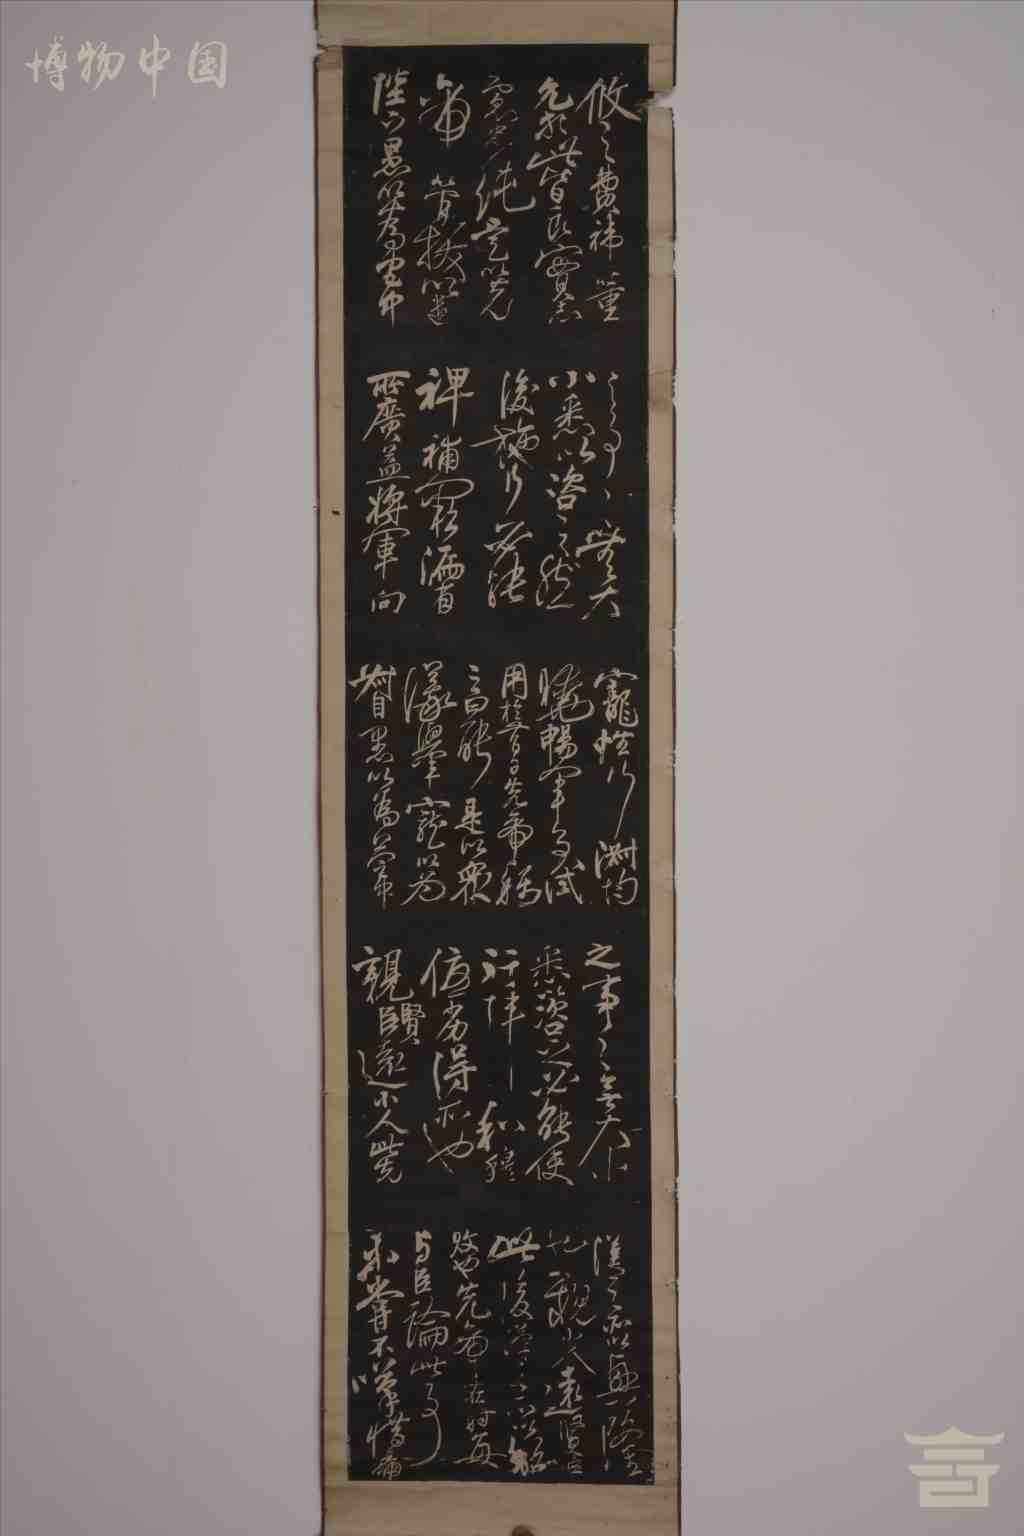 博物中国
攸之費褘董
允等此皆良實志
慮忠純是以先
帝簡拔以遺
陛下愚以為宮中
之事事無大
小悉以咨之然
後施行必能
裨補闕漏有
所廣益將軍向
寵性行淑均
曉暢軍事試
用於昔日先帝稱
之曰能是以眾
議舉寵以為
督愚以為營中
之事事無大小
悉以咨之必能使
行陣和睦
優劣得所也
親賢臣遠小人此先
漢之所以興隆
也親小人遠賢臣
此後漢之所以傾
頹也先帝在時每
與臣論此事
未嘗不嘆惜痛